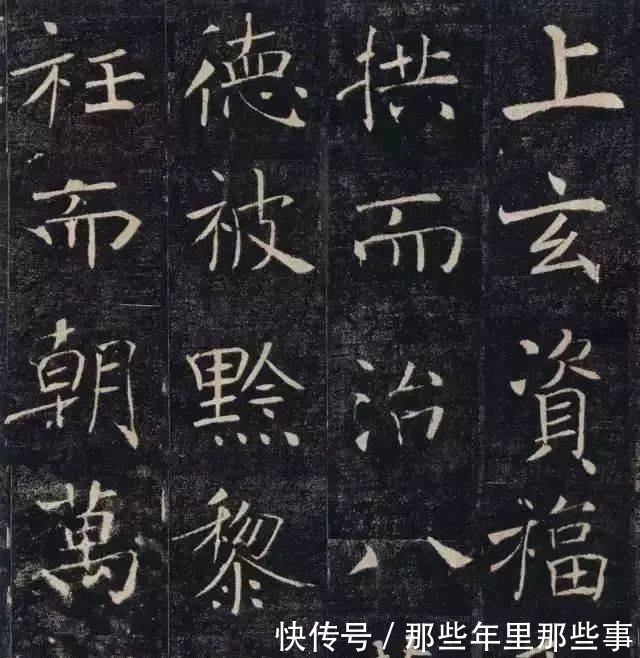 上玄資福
拱而治八
德被黔黎
衽而朝萬
快传号 / 那些年里那些事